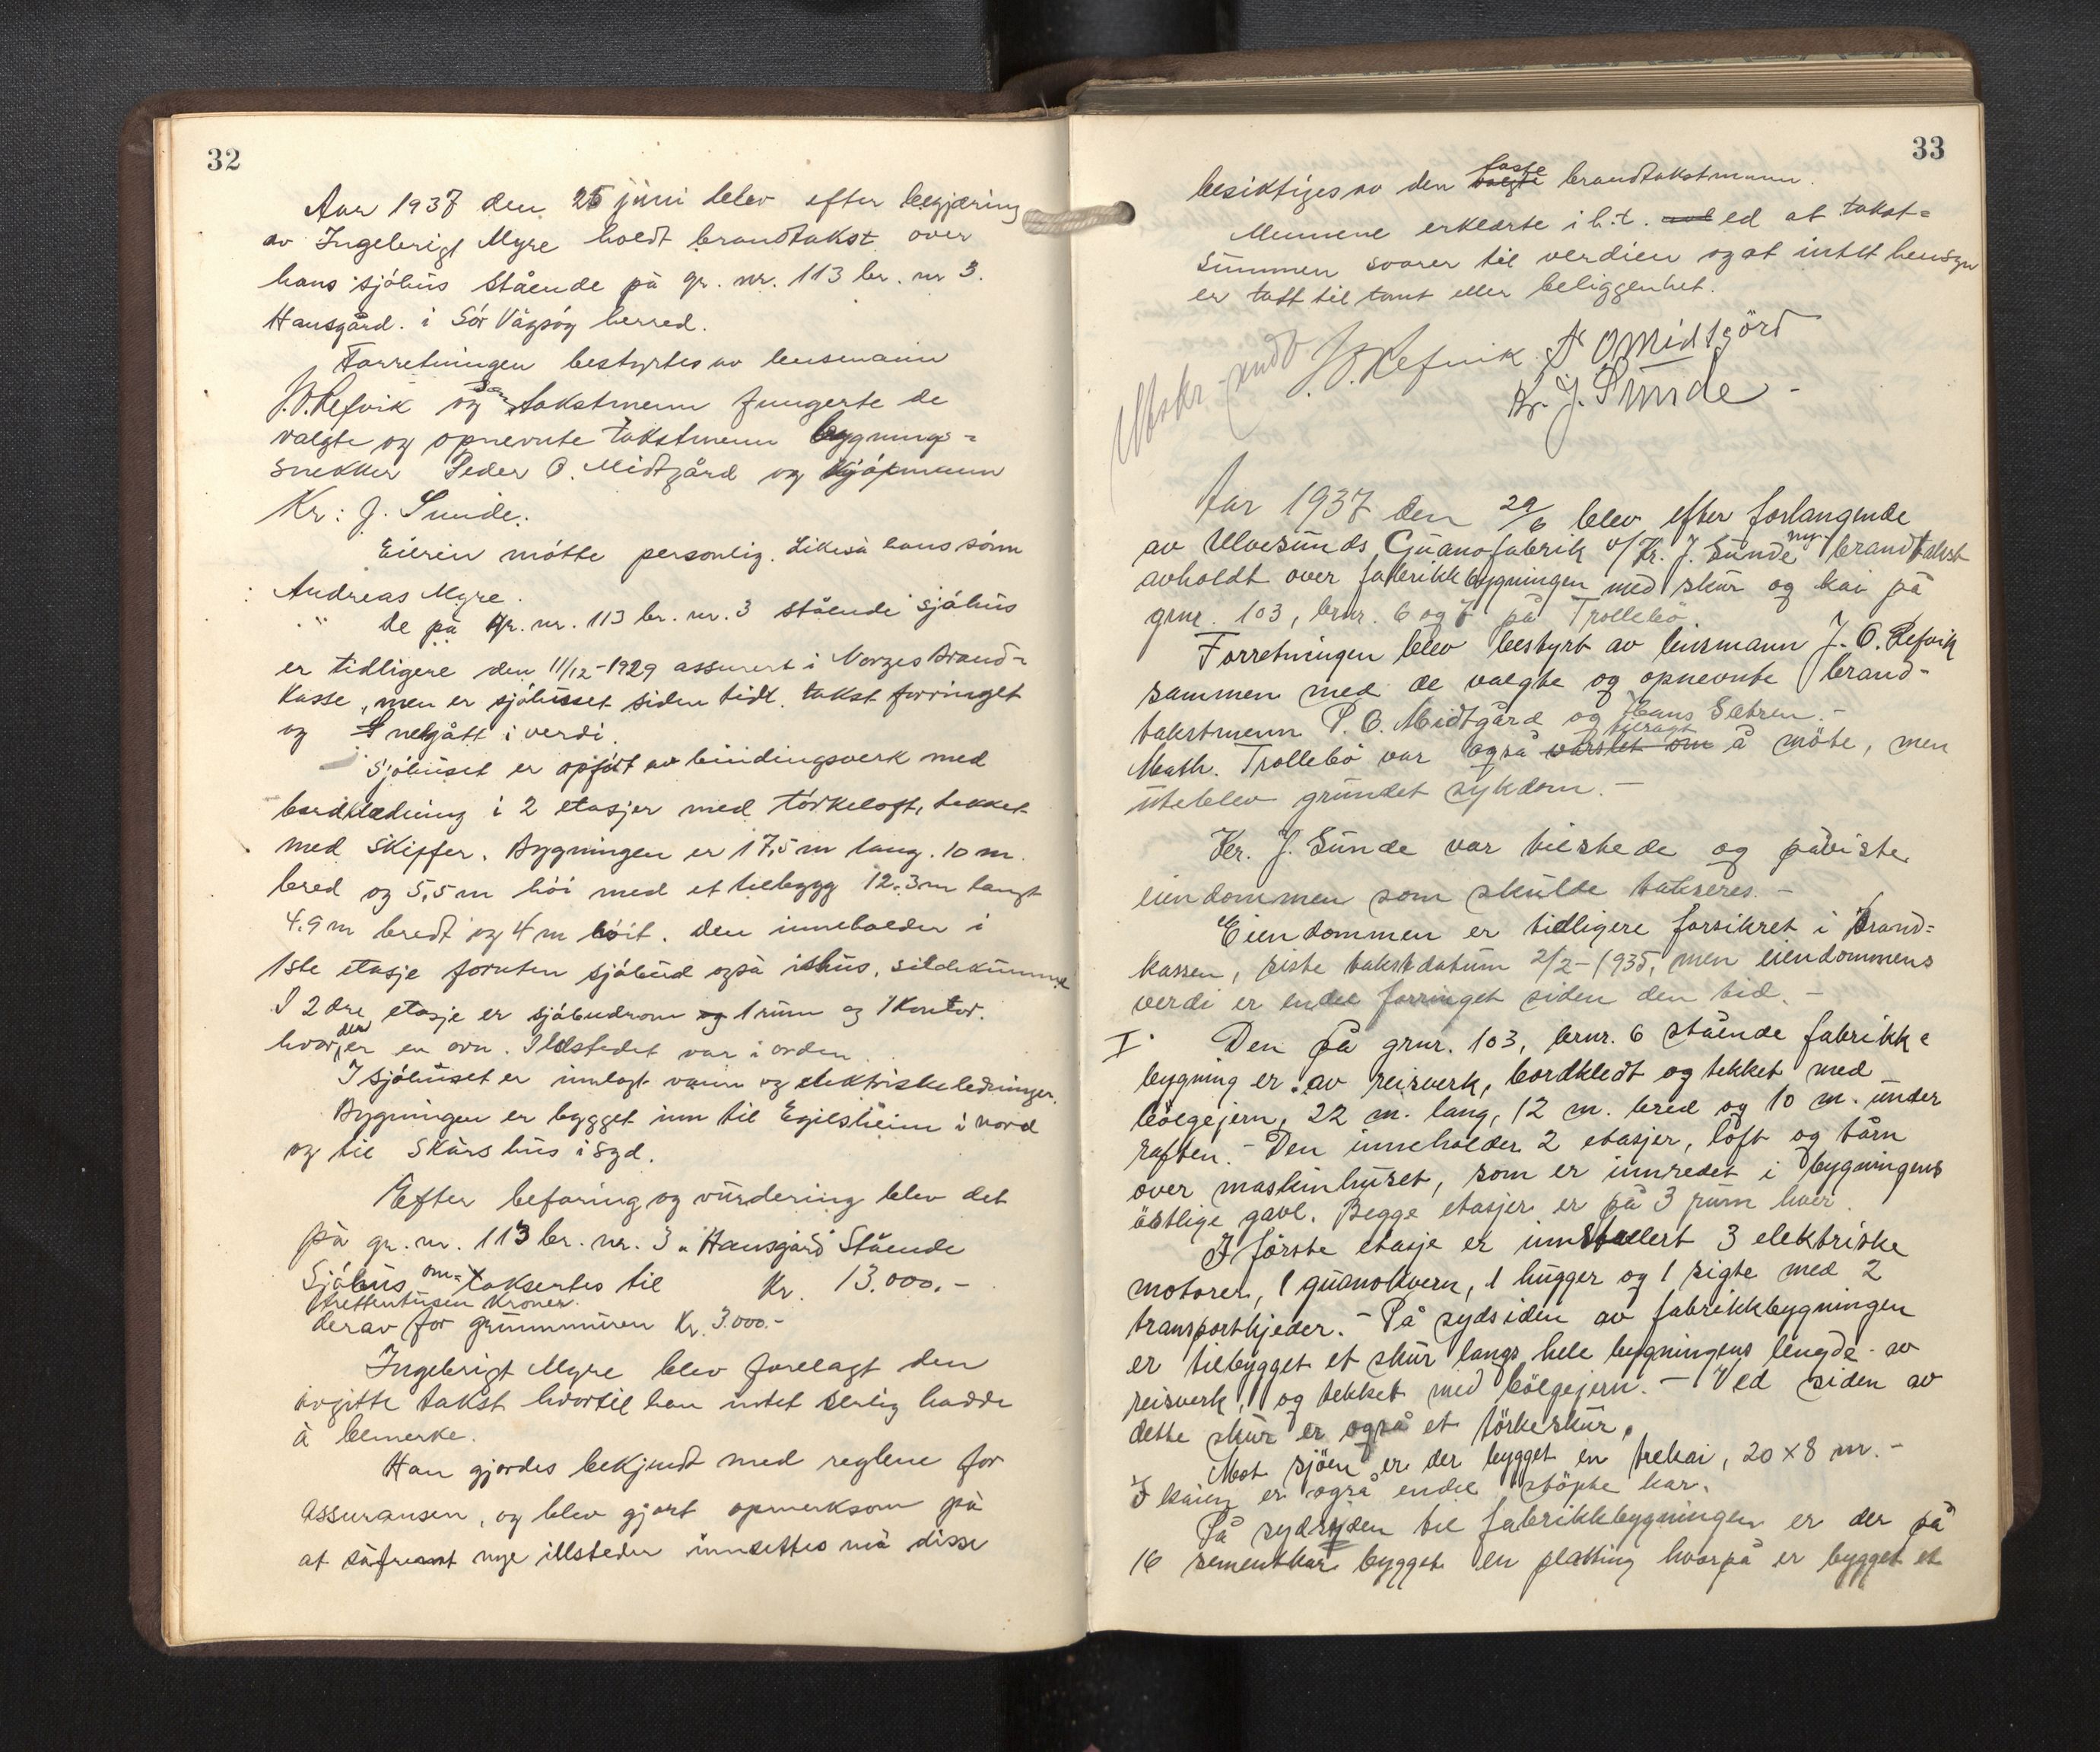 32
Aar 1937 den 25 juni blev efter begjæring
av Ingebrigt Myre holdt brandtakst over
hans sjóhús stående på gr. nr. 113 br. nr 3.
Hansgård. i Sór Vågsóy herred.
Forretningen bestyrtes av lensmann
J.O. Refvik og som takstmenn fungerte de
valgte og opnevnte takstmenn bygnings=
snekker Peder O. Midtgård og kjópmann
Kr: J. Sunde.
Eieren mótte personlig. Likeså hans sónn
Andreas Myre.
De på Gr. nr. 113 br. nr. 3 stående sjóhús
er tidligere den 11/12-1929 assurert i Norges Brand-
kasse, men er sjóhusset siden tidl. takst forringet
og nedgått i verdi.
Sjóhúset er opfórt av bindingsverk med
bordklædning i 2 etasjer med tórkeloft, tekket
med skiffer. Bygningen er 17,5 m lang. 10 m.
bred og 5,5 m hói med et tilbygg 12.3 m langt
4.9 m bredt og 4 m hóit. Den inneholder i
1ste etasje foruten sjóbúd også ishús, sildekummer
I 2 dre etasje er sjóbudrom og 1 rúm og 1 Kontor.
hvor der er en ovn. Ildstedet var i orden.
I sjóhúset er innlagt vann og elektriske ledninger.
Bygningen er bygget inn til Egilsheim i nord
og til Skårs hús i Syd.
Efter befaring og vúrdering blev det
på gr. nr. 113 br. nr. 3 „Hansgård" Stående
Sjóhús om-taksertes til Kr. 13.000.-
trettentúsen Kroner.
derav for grúnnmúren Kr. 3.000.-
Ingebrigt Myre blev forelagt den
avgitte takst hvortil han intet serlig hadde
å bemerke.
Han gjordes bekjendt med reglene for
assuransen, og blev gjort opmerksom på
at såfremt nye illsteder innsettes må disse
33
besiktiges av den valgte faste brandtakstmann.
Mennene erklærte i h.t. ed at takst=
súmmen svarer til verdien og at intet hensyn
er tatt til tomt eller beliggenhet.
J.O. Refvik P O Midtgörd
Kr. J. Súnde -
Aar 1937 den 29/6 blev efter forlangende
av Ulvesúnds Gúanofabrik v/Kr. J. Súnde ny brandtakst
avholdt over fabrikkbygningen med skúr og kai på
grnr. 103, brnr. 6 og 7 på Trollebö.
Forretningen blev bestyrt av lensmann J. O. Refvik
sammen med de valgte og opnevnte brand-
takstmenn P. O. Midtgård og Hans Sætren.-
Math. Trollebö var også varslet om tilsagt å möte, men
úteblev grúndet sykdom.-
Kr. J. Súnde var tilstede og påviste
eiendommen som skúlde takseres.-
Eiendommen er tidligere forsikret i Brand=
kassen, siste takstdatúm 2/2-1935, men eiendommens
verdi er endel forringet siden den tid.-
I. Den på grnr. 103, brnr. 6 stående fabrikk=
bygning er av reisverk, bordkledt og tekket med
bölgejern, 22 m. lang, 12 m. bred og 10 m. únder
raften.- Den inneholder 2 etasjer, loft og tårn
over maskinhúset, som er innredet i bygningens
östlige gavl. Begge etasjer er på 3 rúm hver.
I förste etasje er innstallert 3 elektriske
motorer, 1 gúanokvern, 1 húgger og 1 sigte med 2
transportkjeder.- På sydsiden av fabrikkbygningen
er tilbygget et skúr langs hele bygningens lengde av
reisverk, og tekket med bölgejern.- Ved siden av
dette skúr er også et törkeskúr.
Mot sjöen er der bygget en trekai, 20 x 8 m.-
I kaien er også endel stöpte kar.
På sydsyden til fabrikkbygningen er der på
16 sementkar bygget en platting hvorpå er bygget et